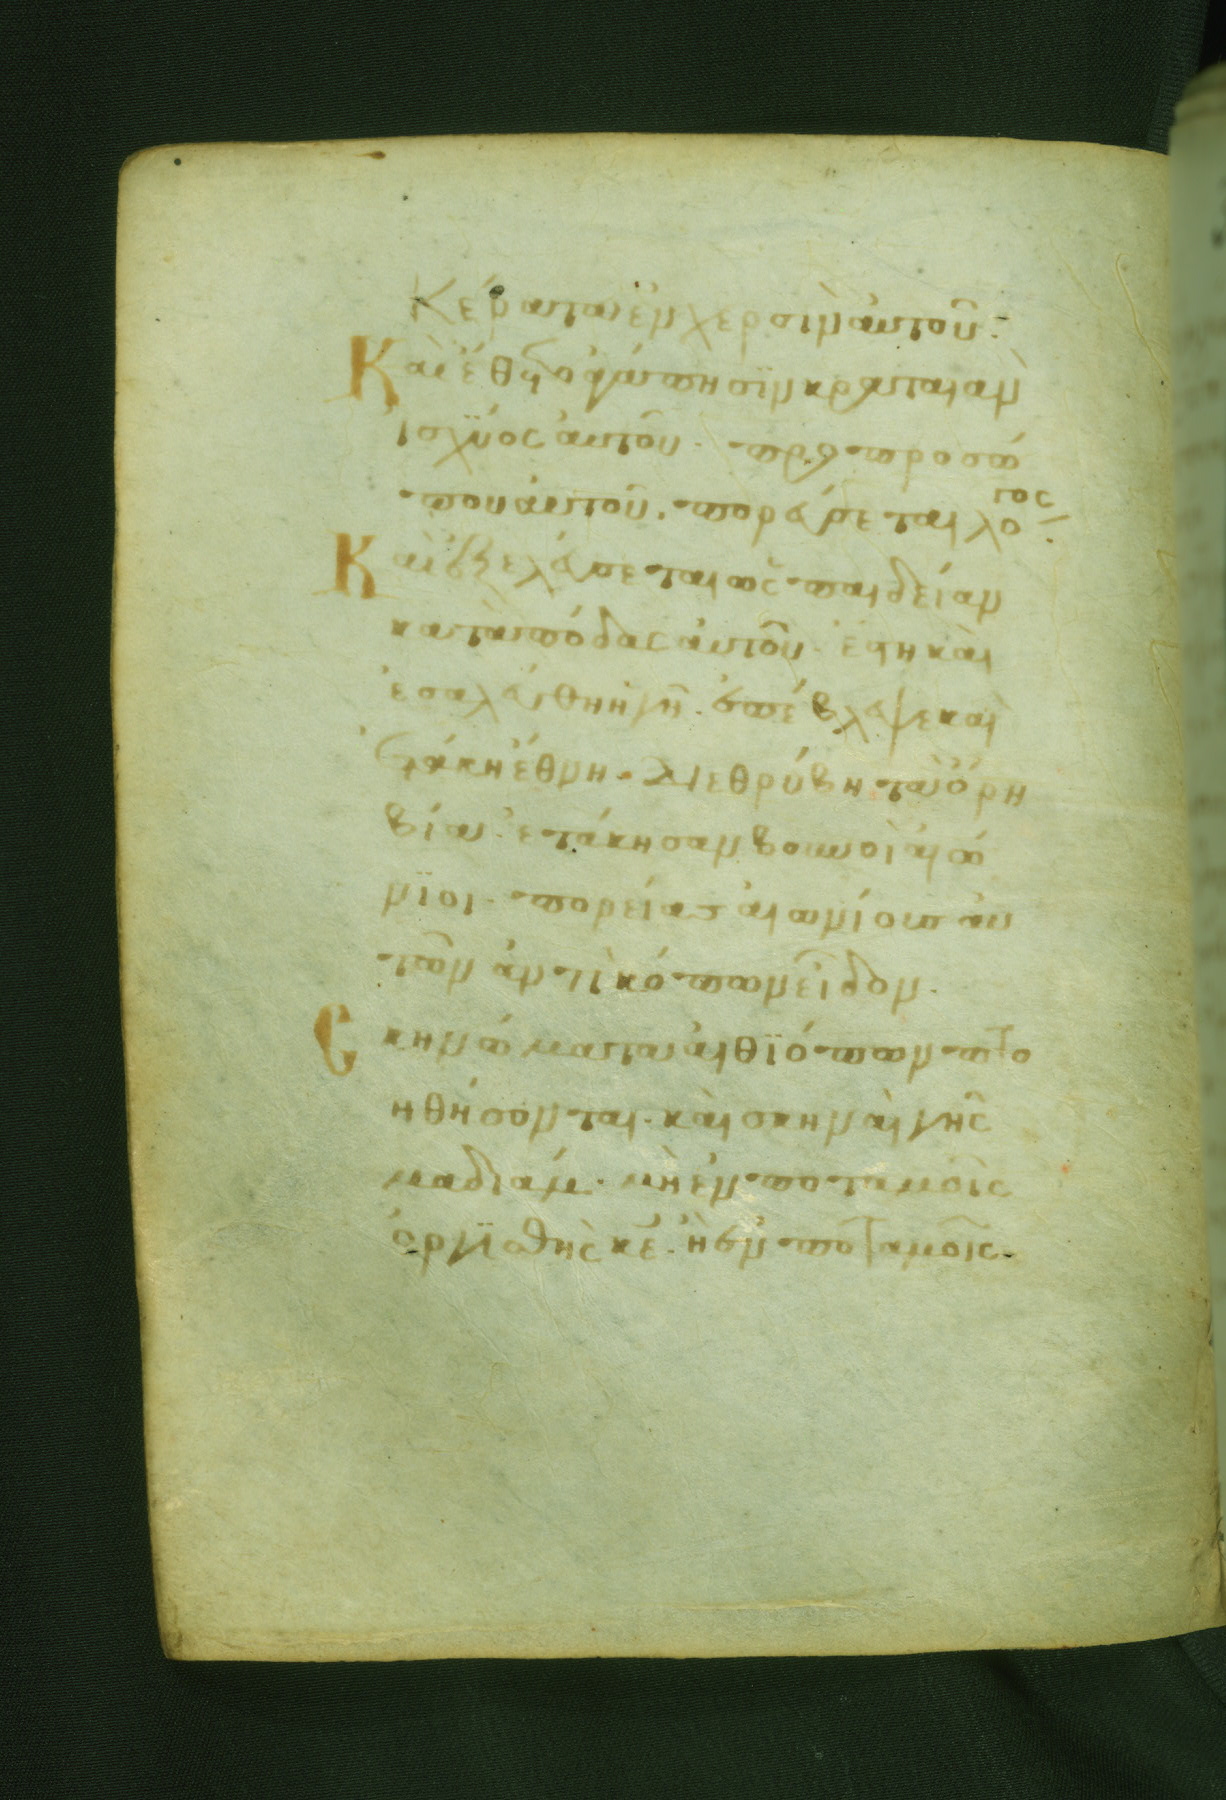 Κέρατα ἐν χερσὶν αὐτοῦ.
Καὶ ἔθετο ἀγάπησϊν κραταιὰν
ἰσχϋος αὐτοῦ. πρὸ προσώ
που αὐτοῦ. πορεύσεται λόγος.
Καὶ ἐξελεύσεται εἰς παιδείαν
κατὰ πόδας αὐτοῦ. ἔστη καὶ
ἐσαλεύθη ἡ γῆ. ἐπέβλεψε καὶ
ἐτάκη ἔθνη. διεθρύβη τὰ ὄρη
βία. ἐτάκησαν βουνοὶ αἰώ
νϊοι. πορείας αἰωνίους αὐ
τοῦ ἀντὶ κόπων εἶδον.
Σκηνώματα αἰθϊόπων πτο
ηθήσονται. καὶ αἱ σκηναὶ γῆς
μαδιάμ. μὴ ἐν ποταμοῖς
ὀργϊσθῆς κε̄. ἢ ἐν ποταμοῖς.